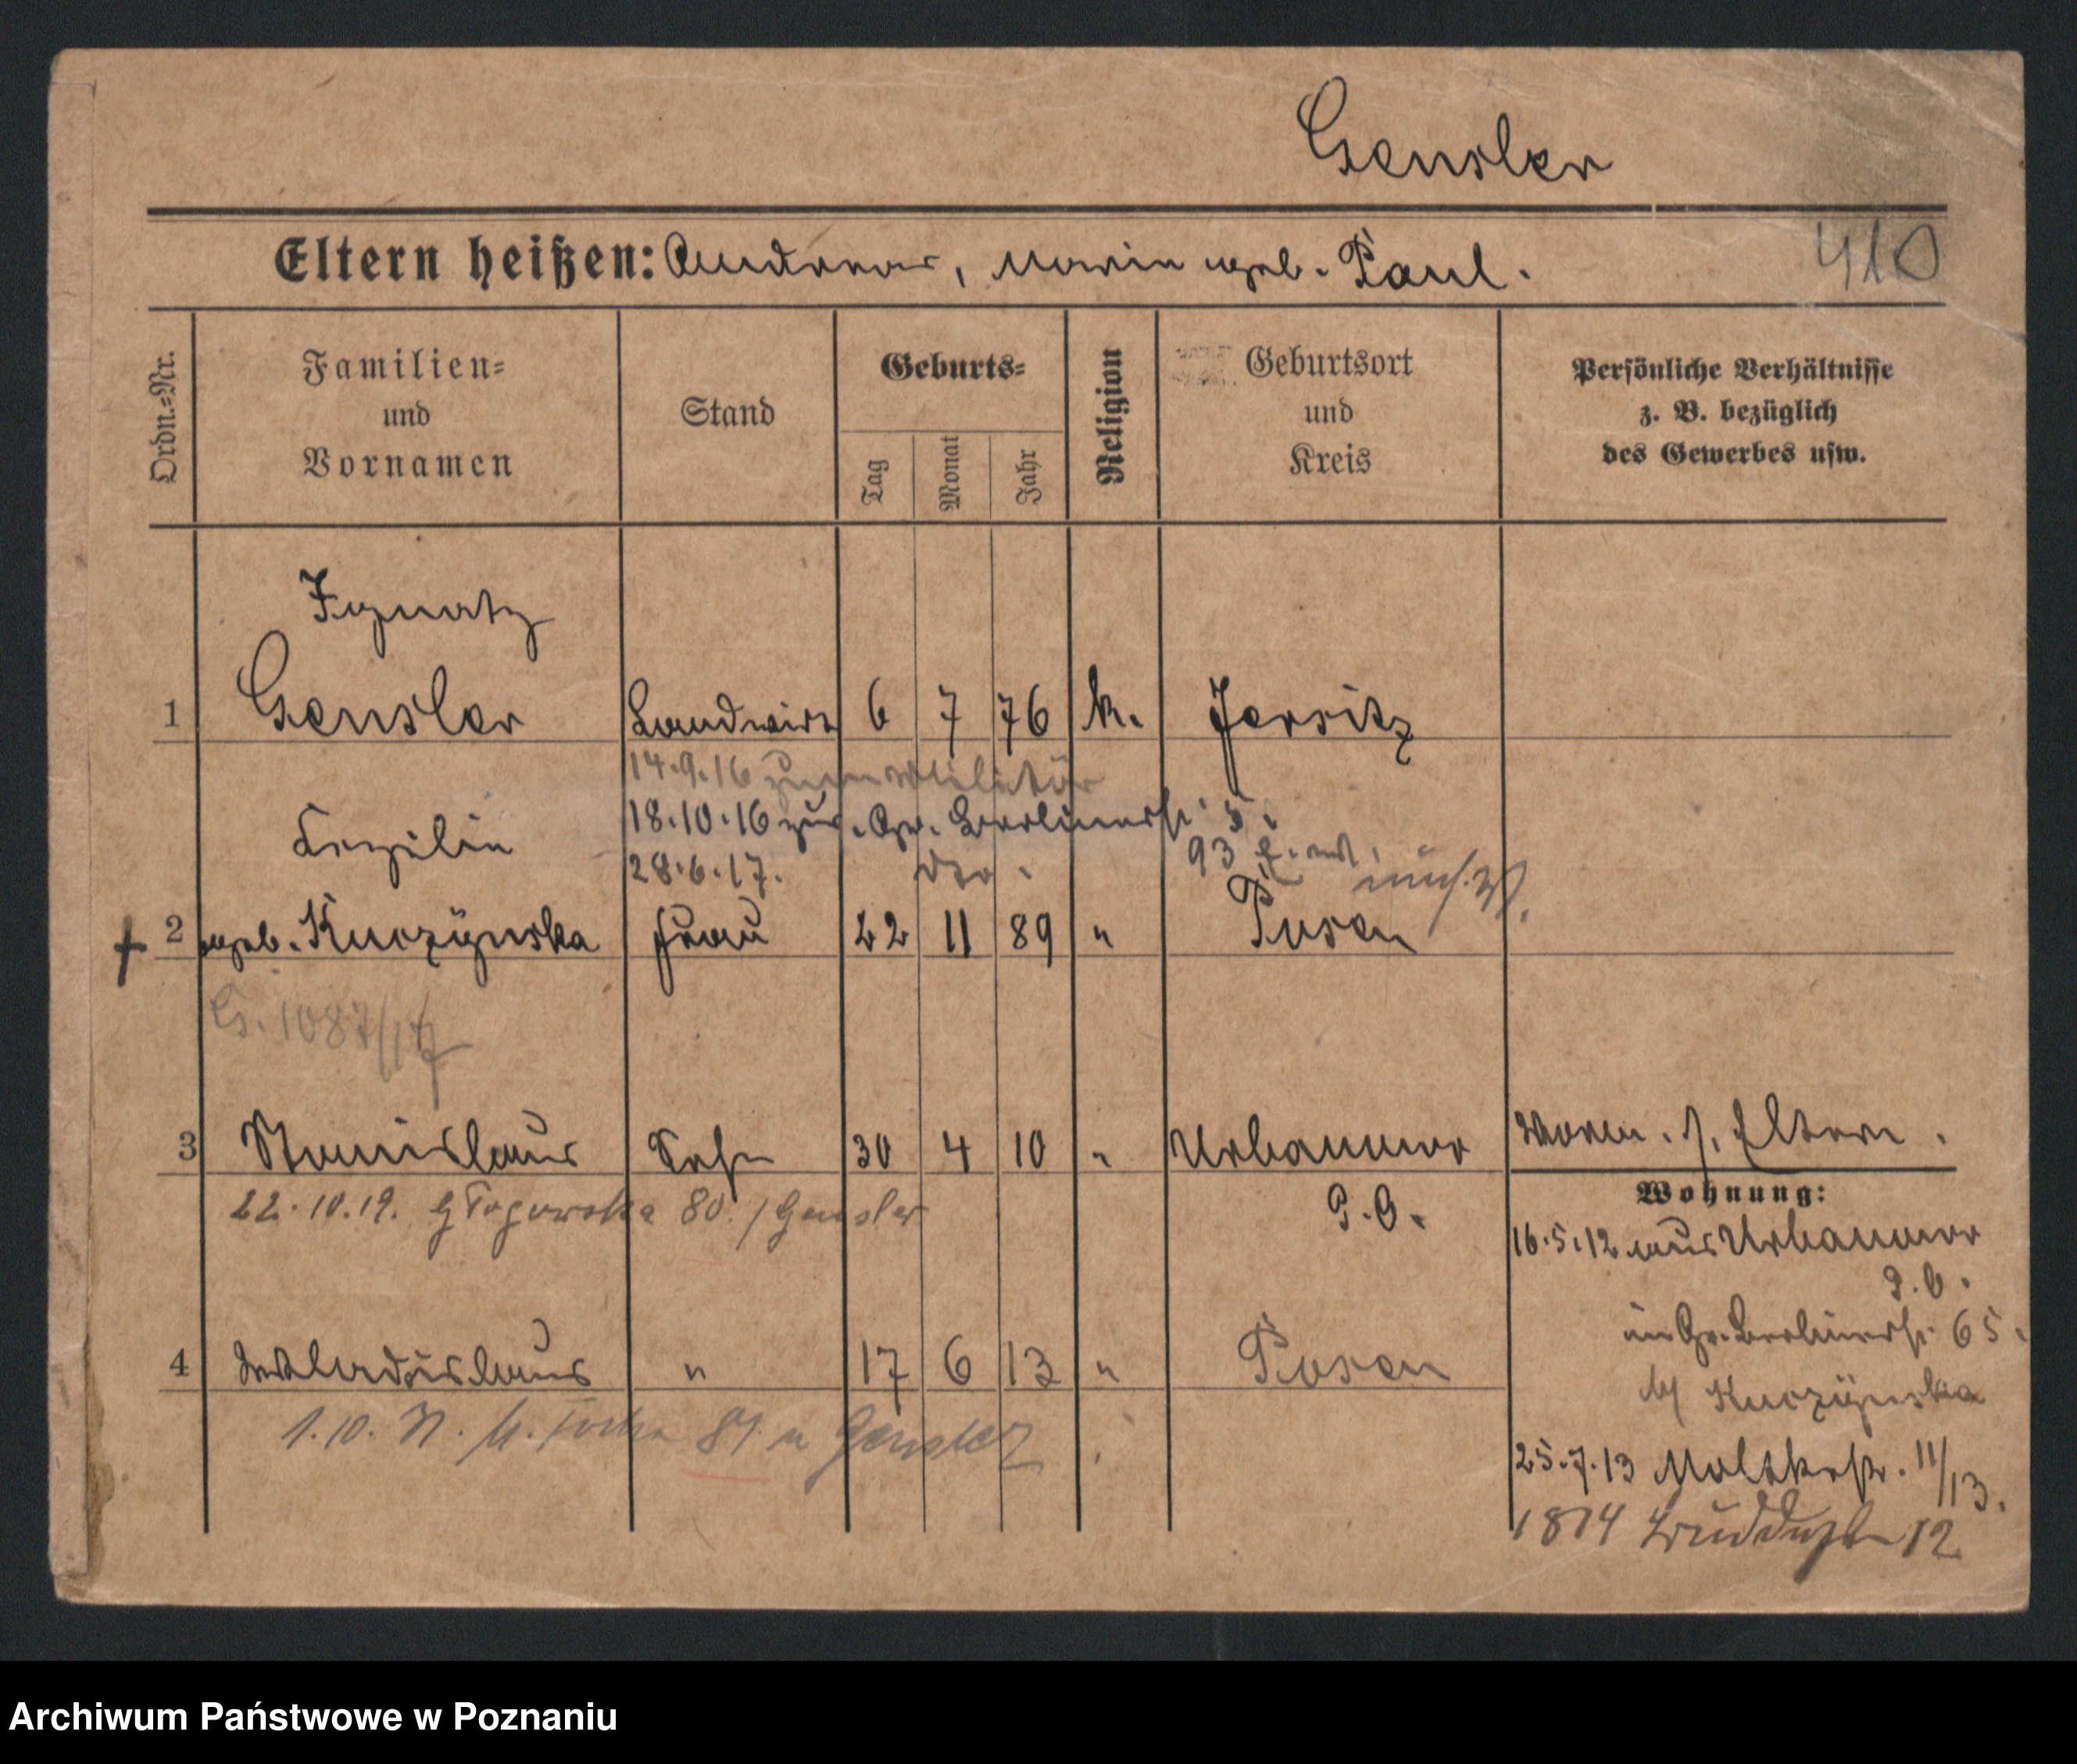 Gensler
Eltern heißen: Andreas, Maria geb. Paul.
410
Ordn.-Nr.
Familien-
und
Vornamen
Stand
Geburts-
Tag
Monat
Jahr
Religion
Geburtsort
und
Kreis
Persönliche Verhältnisse
z. B. bezüglich
des Gewerbes usw.
Ignatz
1 Gensler Landwirt 6 7 76 k. Jersitz
14.9.16 zum Militär
18.10.16 zur. Gr. Berlinerstr. 5.
Cezilia
28.6.17. dto. 93
2 geb. Kurzÿnska Frau 22 11 89 " Posen
G. 1087/17
3 Stanislaus Sohn 30 4 10 " Urbanowo Vorm. s. Eltern.
22.10.19. Głogowska 80. / Gensler
P. O.
Wohnung:
16.5.12 aus Urbanowo
P. O.
in Gr. Berlinerstr. 65.
b/ Kurzÿnska
4 Wladislaus " 17 6 13 " Posen
1.10. 81 Gensler
25.7.13 Moltkestr. 11/13.
1814 12
Archiwum Państwowe w Poznaniu